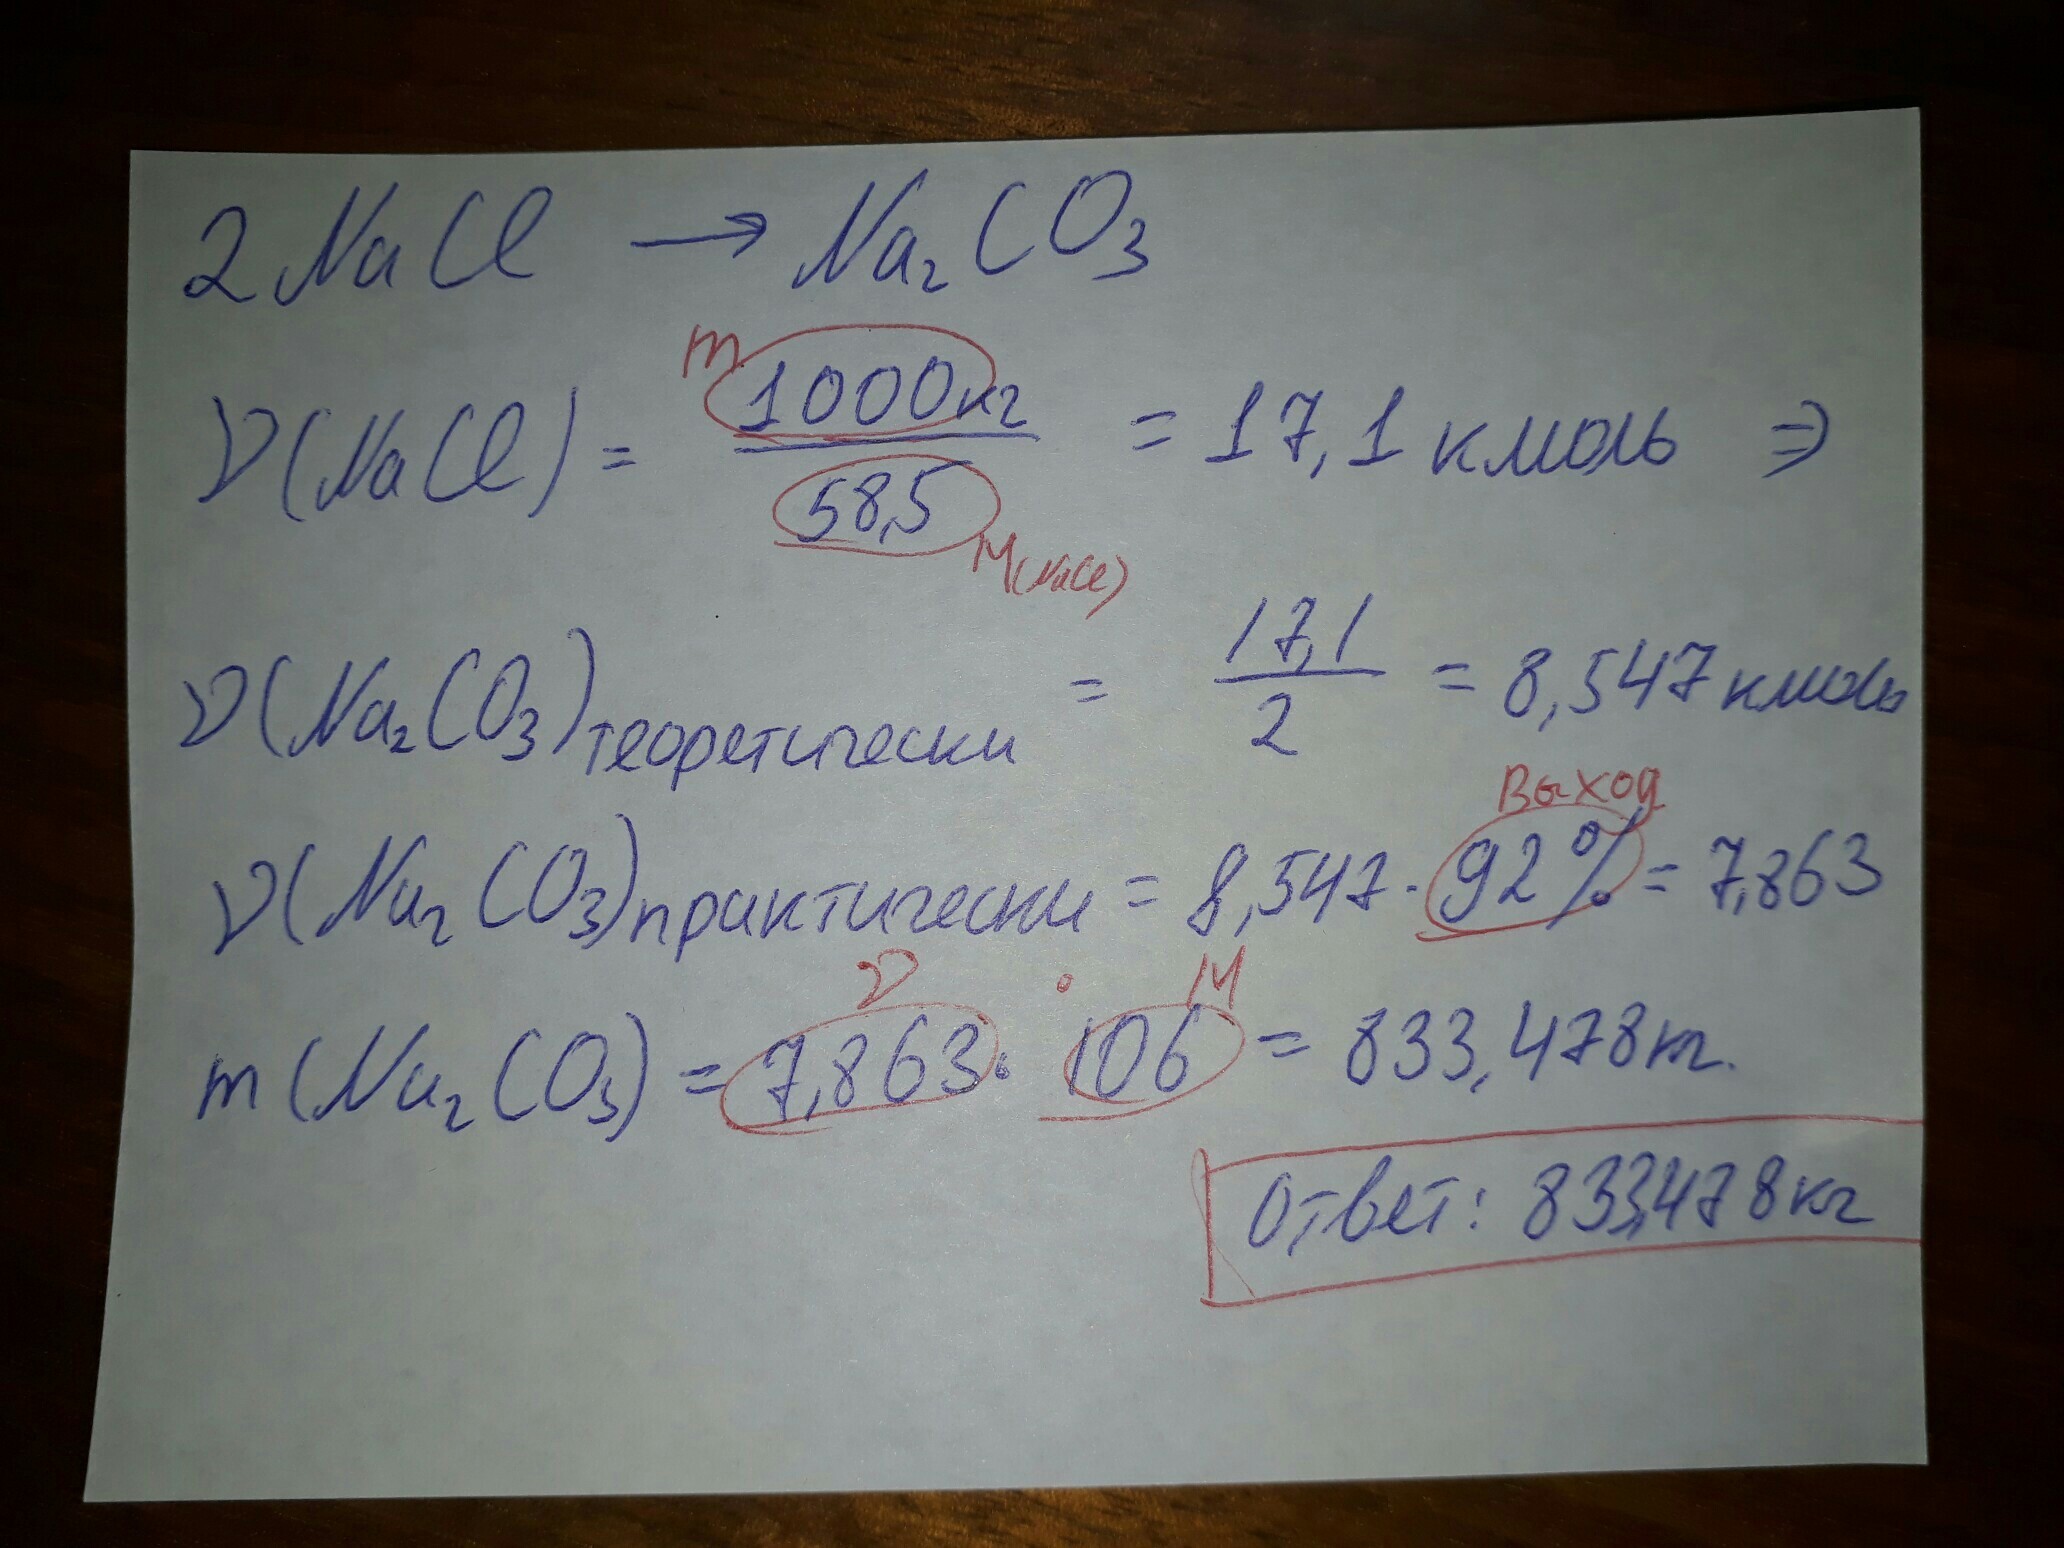 2NaCl → Na₂CO₃
m
ν(NaCl) = 1000кг / 58,5 = 17,1 кмоль ⇒
M(NaCl)
ν(Na₂CO₃)теоретически = 17,1 / 2 = 8,547 кмоль
Выход
ν(Na₂CO₃)практически = 8,547 · 92% = 7,863
ν · M
m(Na₂CO₃) = 7,863 · 106 = 833,478 кг.
Ответ: 833,478 кг